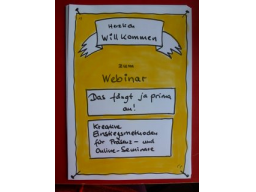 Herzlich
Willkommen
zum
Webinar
Das fängt ja prima
an!
Kreative
Einstiegsmethoden
für Präsenz- und
Online-Seminare